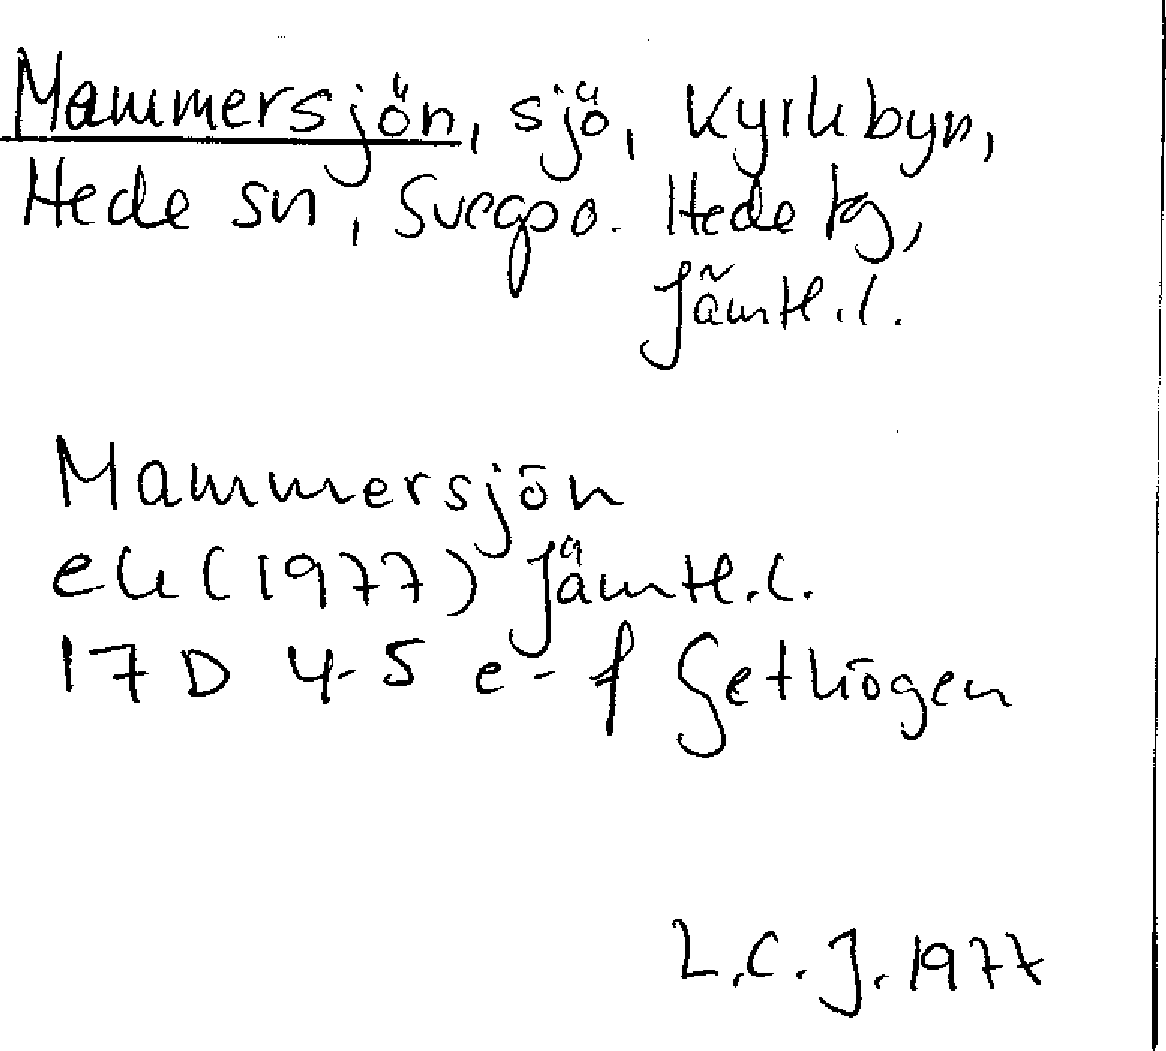 Mammersjön, sjö, Kyrkbyn,
Hede sn, Svegs o. Hede tg,
Jämtl. l.
Mammersjön
ek (1977) Jämtl. l.
17 D 4-5 e-f Gethögen
L. C. J. 1977